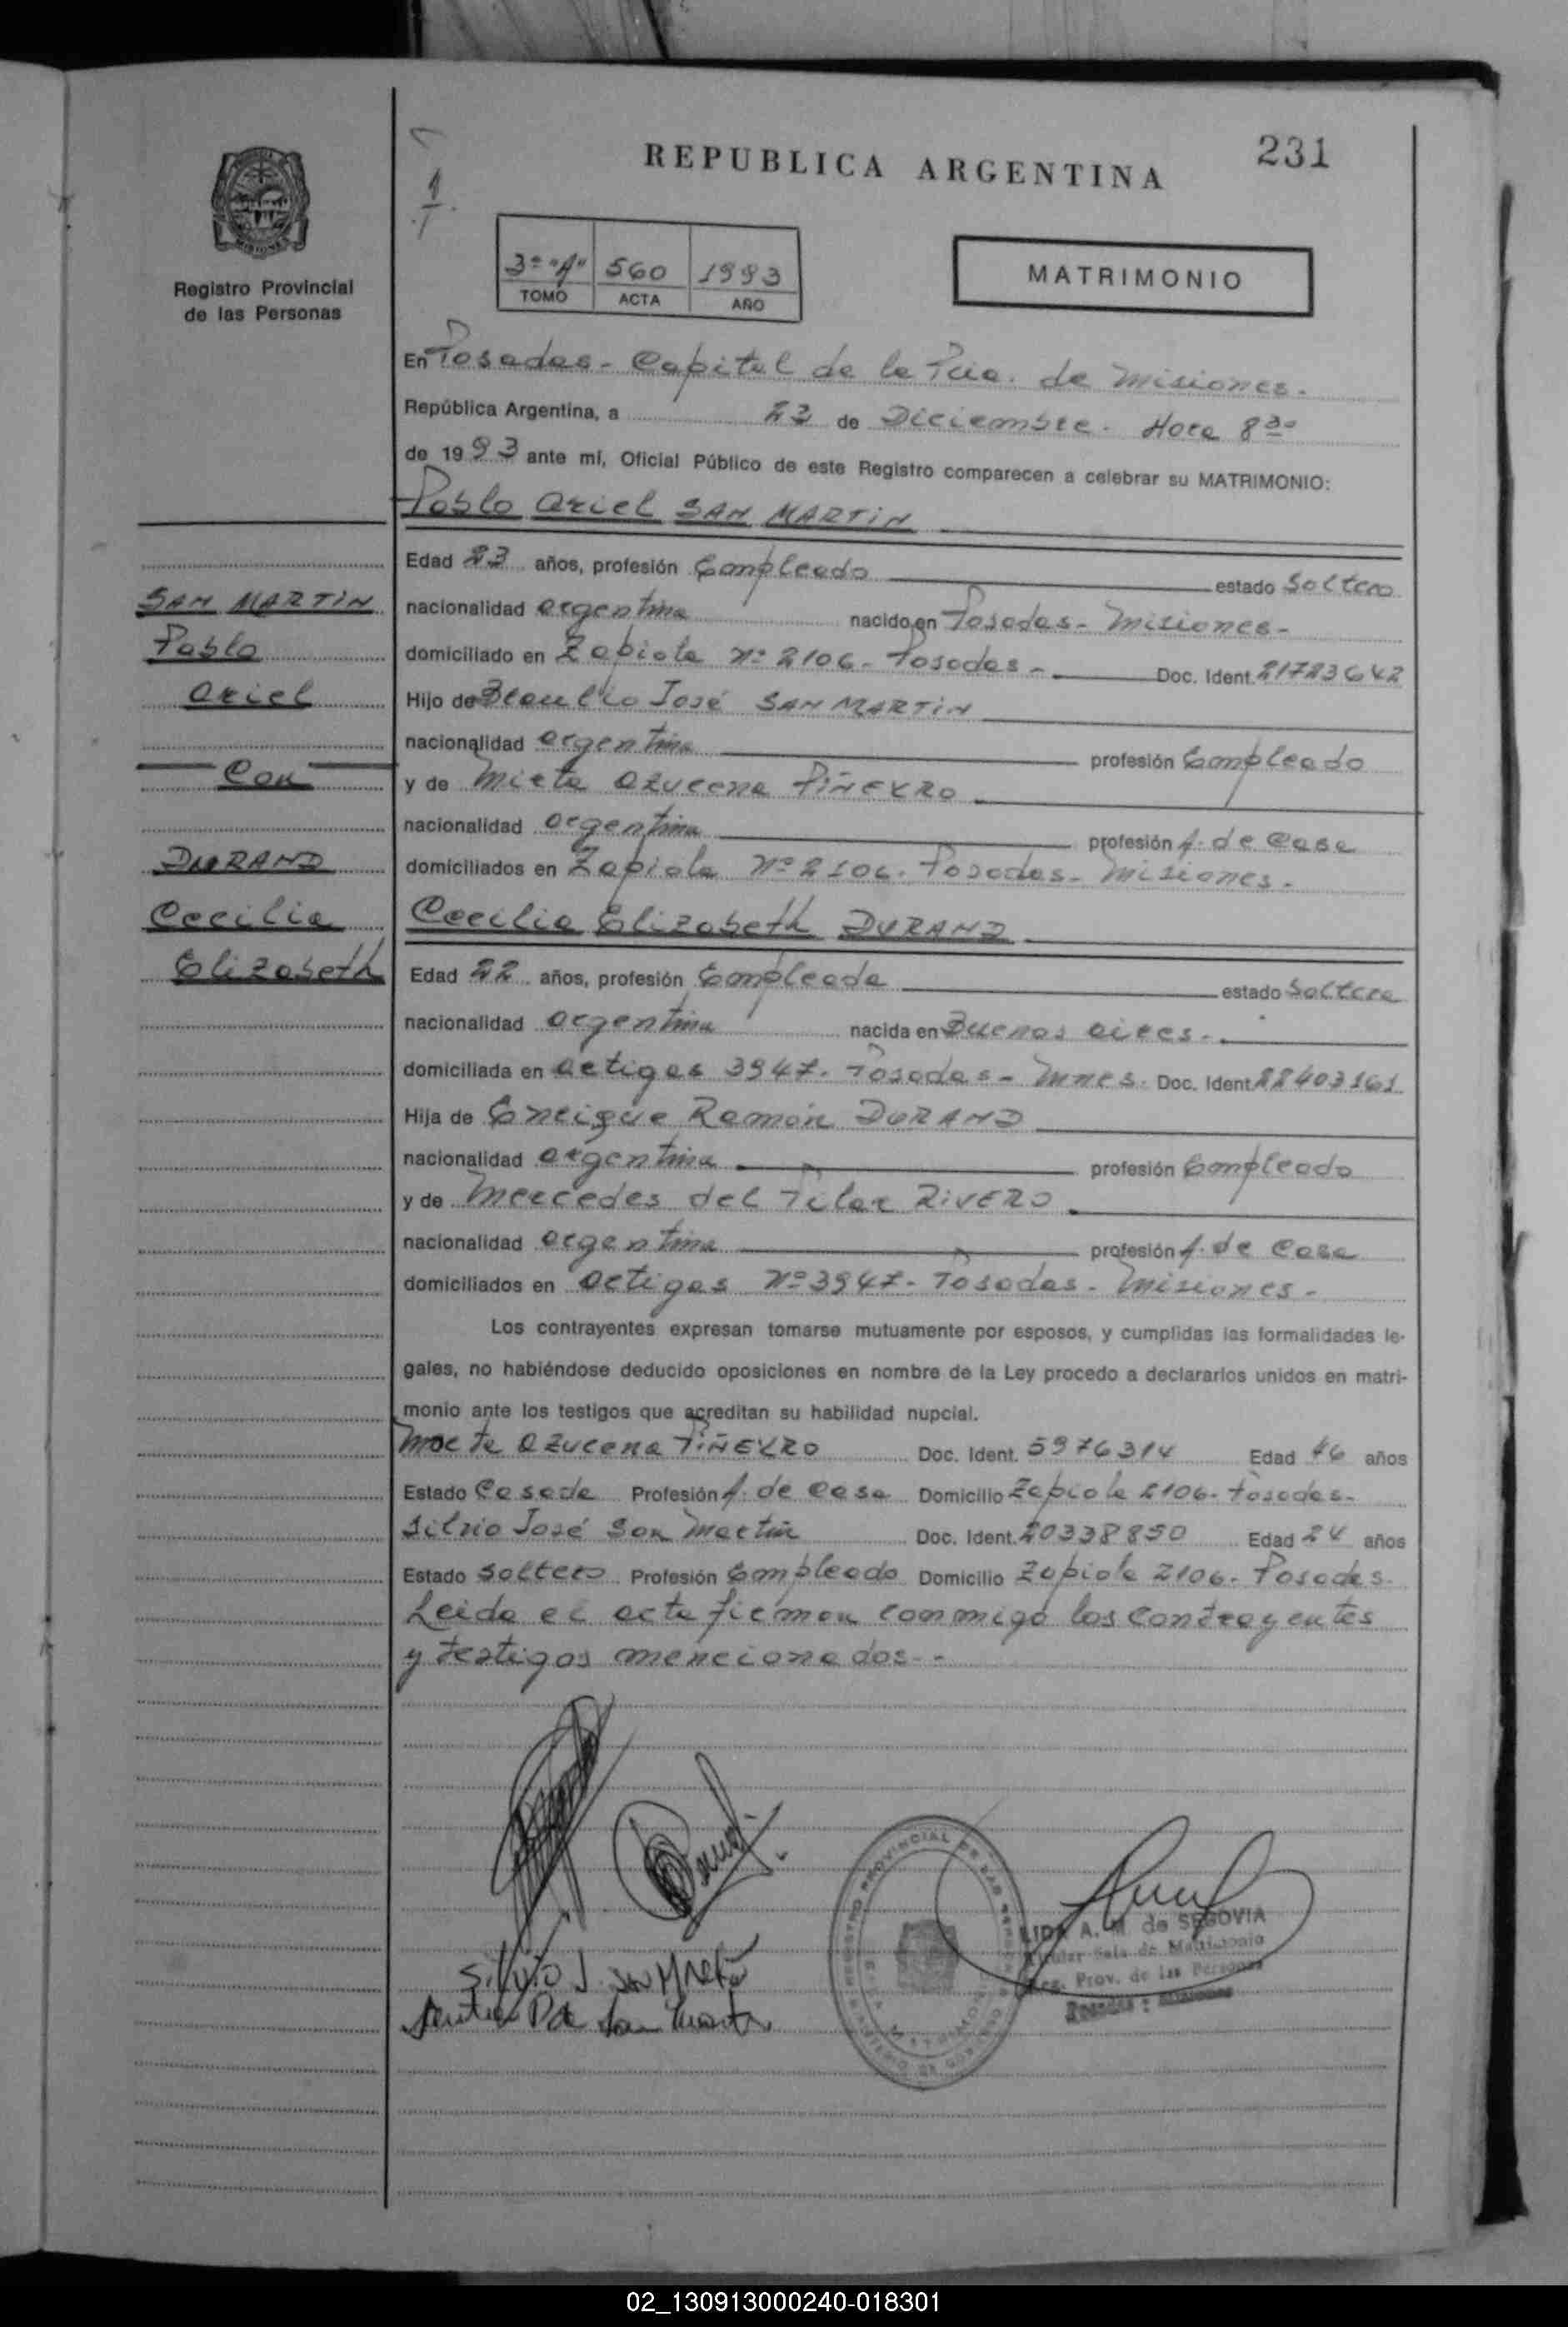 REPUBLICA ARGENTINA
231
Registro Provincial
de las Personas
3º "A" 560 1993
TOMO ACTA AÑO
MATRIMONIO
En Posadas - Capital de la Pcia. de Misiones.
República Argentina, a 23 de Diciembre. Hora 8 30
de 1993 ante mí, Oficial Público de este Registro comparecen a celebrar su MATRIMONIO:
Pablo Ariel SAN MARTIN
Edad 23 años, profesión Empleado estado Soltero
SAN MARTIN
nacionalidad argentina nacido en Posadas - Misiones -
Pablo
domiciliado en Zapiola Nº 2106 - Posadas - Doc. Ident. 21723642
Ariel
Hijo de Braulio José SAN MARTIN
nacionalidad argentina profesión Empleado
Con
y de Mirta Azucena PIÑEYRO
nacionalidad argentina profesión A. de Casa
DURAND
domiciliados en Zapiola Nº 2106. Posadas - Misiones.
Cecilia
Cecilia Elizabeth DURAND
Elizabeth
Edad 22 años, profesión Empleada estado Soltera
nacionalidad argentina nacida en Buenos Aires -
domiciliada en Artigas 3947. Posadas - Mnes. Doc. Ident. 22403161
Hija de Enrique Ramón DURAND
nacionalidad argentina profesión Empleado
y de Mercedes del Pilar RIVERO
nacionalidad argentina profesión A. de Casa
domiciliados en Artigas Nº 3947 - Posadas - Misiones -
Los contrayentes expresan tomarse mutuamente por esposos, y cumplidas las formalidades le-
gales, no habiéndose deducido oposiciones en nombre de la Ley procedo a declararlos unidos en matri-
monio ante los testigos que acreditan su habilidad nupcial.
Mirta Azucena PIÑEYRO Doc. Ident. 5976314 Edad 46 años
Estado Casada Profesión A. de Casa Domicilio Zapiola 2106 - Posadas -
Silvio José San Martín Doc. Ident. 20338850 Edad 24 años
Estado Soltero Profesión Empleado Domicilio Zapiola 2106 - Posadas -
Leida el acta firman conmigo los contrayentes
y testigos mencionados - -
Silvio J. San Martín
de San Martin
LIDA A. M. de SEGOVIA
Titular Sala de Matrimonio
Reg. Prov. de las Personas
Posadas - Misiones
02_130913000240-018301